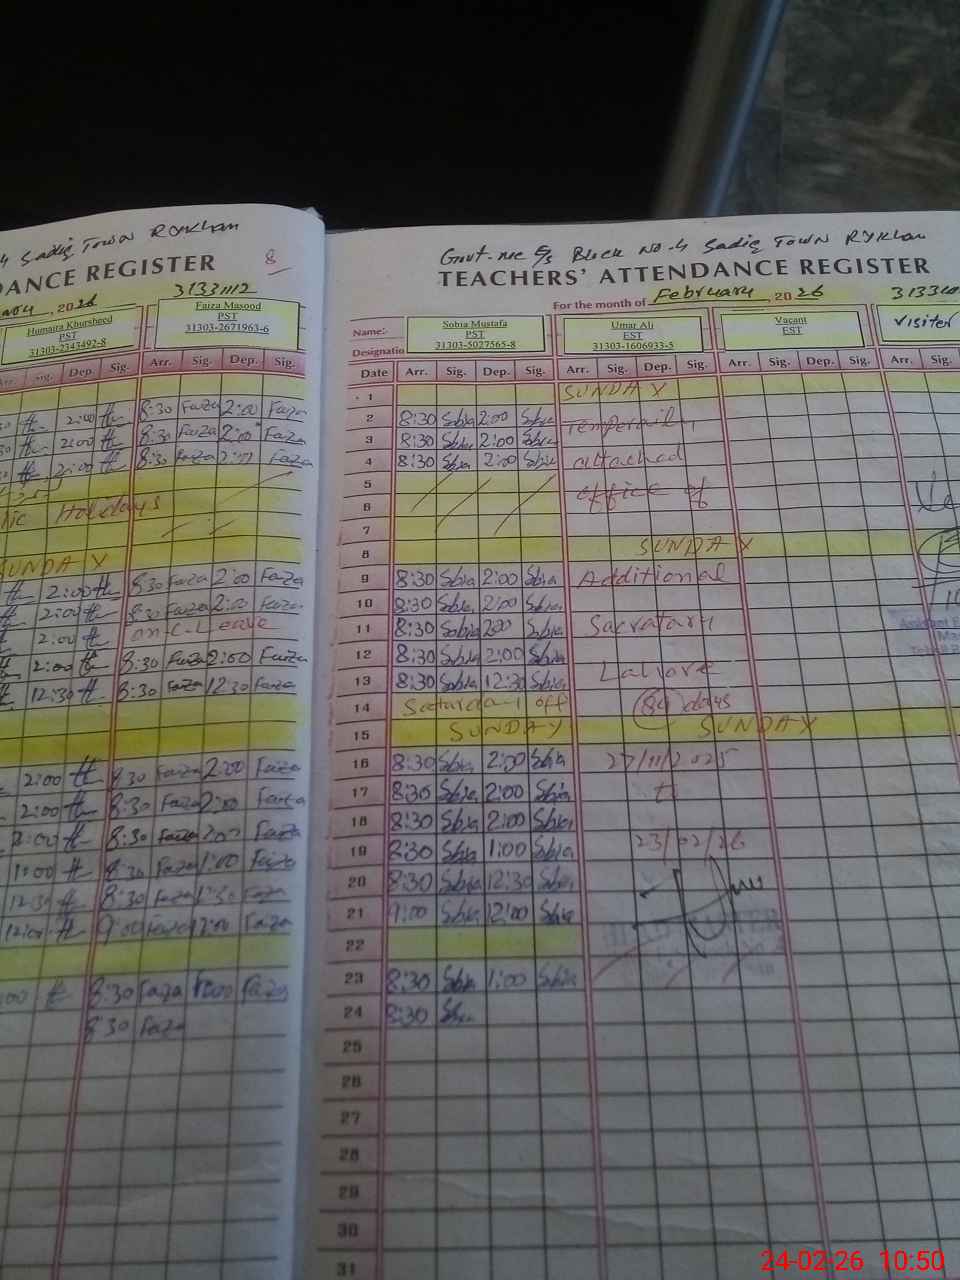 Sadiq Town RYKhan
DANCE REGISTER
8
, 2026
31331112
Humaira Khursheed
PST
31303-2343492-8
Faiza Masood
PST
31303-2671963-6
Arr. Sig. Dep. Sig. Arr. Sig. Dep. Sig.
2:00 8:30 Faiza 2:00 Faiza
2:00 8:30 Faiza 2:00 Faiza
2:00 8:30 Faiza 2:00 Faiza
Holidays
SUNDAY
2:00 8:30 Faiza 2:00 Faiza
2:00 8:30 Faiza 2:00 Faiza
2:00 on C-Leave
2:00 8:30 Faiza 2:00 Faiza
12:30 8:30 Faiza 12:30 Faiza
2:00 8:30 Faiza 2:00 Faiza
2:00 8:30 Faiza 2:00 Faiza
2:00 8:30 Faiza 2:00 Faiza
1:00 8:30 Faiza 1:00 Faiza
12:30 8:30 Faiza Faiza
12:00 9:00 Faiza 12:00 Faiza
:00 8:30 Faiza Faiza
8:30 Faiza
Block No-4 Sadiq Town RYKhan
TEACHERS' ATTENDANCE REGISTER
For the month of February, 2026
Name:-
Designatio
Sobia Mustafa
PST
31303-5027565-8
Umar Ali
EST
31303-1606933-5
Vacant
EST
Visiter
Date Arr. Sig. Dep. Sig. Arr. Sig. Dep. Sig. Arr. Sig. Dep. Sig. Arr. Sig.
1 SUNDAY
2 8:30 Sobia 2:00 Sobia Temperaily
3 8:30 Sobia 2:00 Sobia
4 8:30 Sobia 2:00 Sobia attached
5
6 office of
7
8 SUNDAY
9 8:30 Sobia 2:00 Sobia Additional
10 8:30 Sobia 2:00 Sobia
11 8:30 Sobia 2:00 Sobia Sacratary
12 8:30 Sobia 2:00 Sobia
13 8:30 Sobia 12:30 Sobia Lahore
14 Saturday off 89 days
15 SUNDAY SUNDAY
16 8:30 Sobia 2:00 Sobia 27/11/2025
17 8:30 Sobia 2:00 Sobia t
18 8:30 Sobia 2:00 Sobia
19 8:30 Sobia 1:00 Sobia 23/02/26
20 8:30 Sobia 12:30 Sobia
21 9:00 Sobia 12:00 Sobia
22
23 8:30 Sobia 1:00 Sobia
24 8:30 Sobia
25
26
27
28
29
30
31
24-02-26 10:50